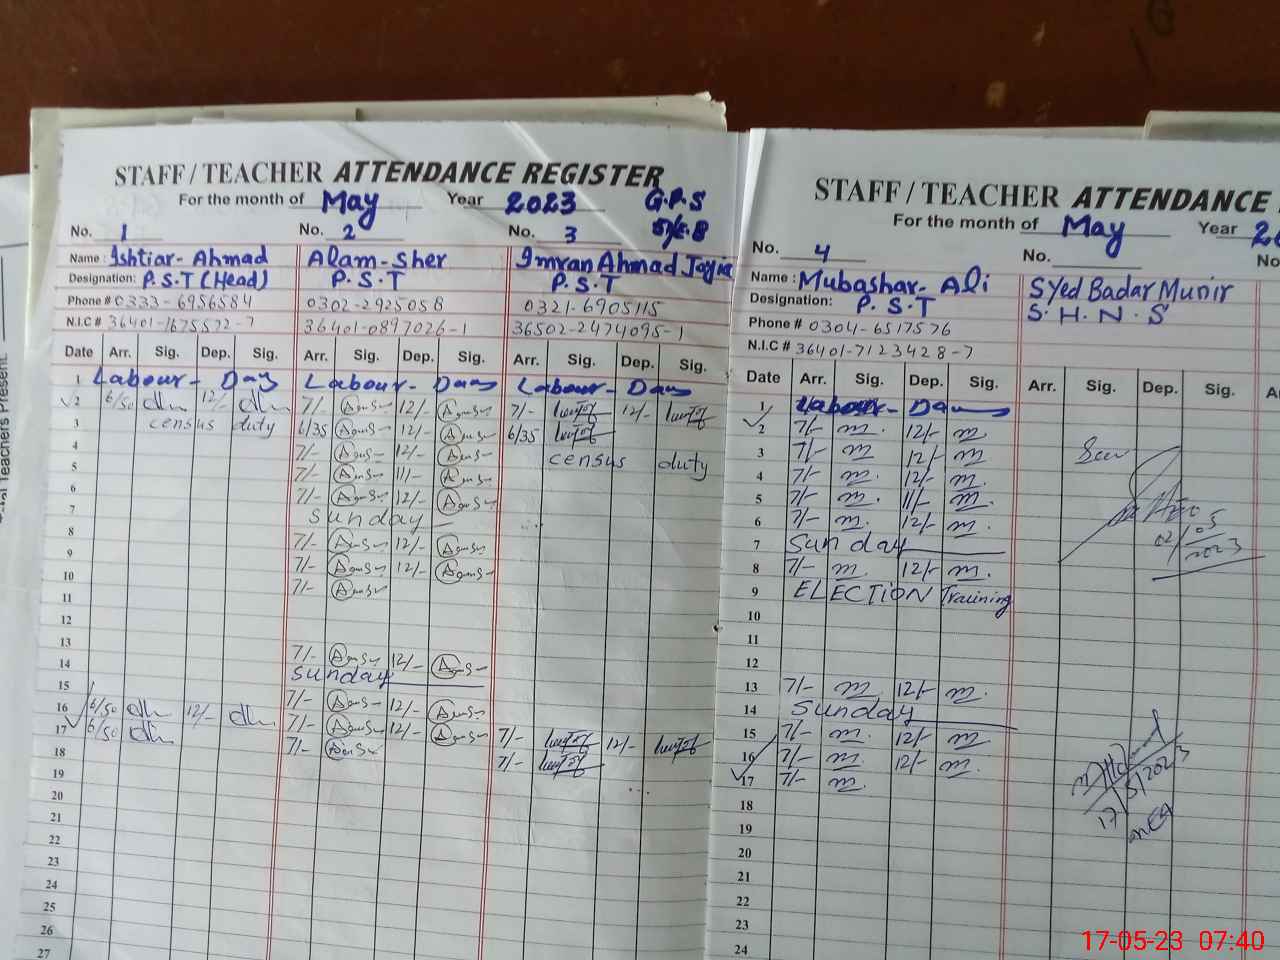 STAFF / TEACHER ATTENDANCE REGISTER
For the month of May Year 2023 G.P.S
No. 1 No. 2 No. 3
Name : Ishtiar-Ahmad Alam-Sher Imran Ahmad Joyia
Designation: P.S.T (Head) P.S.T P.S.T
Phone # 0333-6956584 0302-2925058 0321-6905115
N.I.C # 36401-1675572-7 36401-0897026-1 36502-2474095-1
Date Arr. Sig. Dep. Sig. Arr. Sig. Dep. Sig. Arr. Sig. Dep. Sig.
1 Labour-Day Labour-Day Labour-Day
2 6/50 12/- 7/- 12/- 7/- 12/-
3 census duty 6/35 12/- 6/35
4 7/- 12/- census duty
5 7/- 11/-
6 7/- 12/-
7 Sunday
8 7/- 12/-
9 7/- 12/-
10 7/-
11
12
13 7/- 12/-
14 Sunday
15 7/- 12/-
16 6/50 12/- 7/- 12/- 7/- 12/-
17 6/50 7/- 7/-
18
19
20
21
22
23
24
25
26
27
STAFF / TEACHER ATTENDANCE
For the month of May Year
No. 4 No. No
Name : Mubashar-Ali Syed Badar Munir
Designation: P.S.T S.H.N.S
Phone # 0304-6517576
N.I.C # 36401-7123428-7
Date Arr. Sig. Dep. Sig. Arr. Sig. Dep. Sig.
1 Labour-Day
2 7/- m. 12/- m
3 7/- m 12/- m
4 7/- m. 12/- m.
5 7/- m. 11/- m.
6 7/- m. 12/- m.
7 Sunday
8 7/- m. 12/- m.
9 ELECTION Training
10
11
12
13 7/- m 12/- m.
14 Sunday
15 7/- m. 12/- m
16 7/- m. 12/- m.
17 7/- m.
18
19
20
21
22
23
24
02/05
2023
17/5/2023
MEA
Teachers Present
17-05-23 07:40